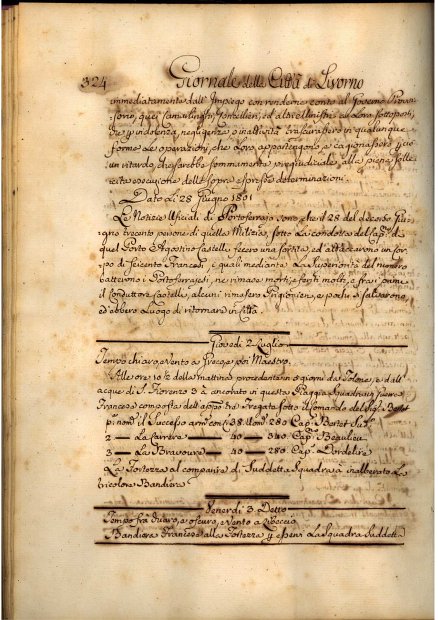 324 Giornale della Città di Livorno
immediatamente dall' Impiego con renderne conto al Governo Provi-
sorio, quei Camarlinghi, Cancellieri, ed altri Ministri ed a Loro sottoposti,
che p indolenza, negligenza o inattività trascurassero in qualunque
forma Le operazioni, che Loro appartengono, e cagionassero p ciò
un ritardo, che sarebbe sommamente pregiudiciale alla piena, solle-
cita esecuzione delle sopra espresse determinazioni.
Dato Li 28 Giugno 1801
Le Notizie Ufficiali di Portoferrajo sono, che il 28 del decorso Giu-
gno trecento persone di quella Milizia, sotto La condotta del Cap. di
quel Porto Agostino Castella fecero una sortita, ed attaccarono un Cor-
po di Seicento Francesi, i quali mediante La Superiorità del numero
batterono i Portoferrajesi, ne rimase morti, e feriti molti, e frai primi
il conduttore Castella, alcuni rimasero Prigionieri, e pochi si salvarono,
ed ebbero Luogo di ritornare in Città.
Giovedì 2 Luglio
Tempo chiaro, e Vento a Grecale poi Maestro.
Alle ore 10 1/2 della mattina procedente in giorni da Tolone, e dall'
acque di S. Fiorenzo 3 à ancorato in questa Spiaggia Squadra
Francese composta dell' appiè tre Fregate sotto il Comando del Sig.
p. nom. il Successo arm. con C. 38 Uom. 280 Cap.
2 — La Carrere — 40 — 340 Cap. Beaulieu
3 — La Bravoure — 40 — 280 Cap. Dordelire
La Fortezza al comparire di Suddetta Squadra à inalberato La
tricolore Bandiera
Venerdì 3 Detto
Tempo frà chiaro, e oscuro, e Vento a Libeccio
Bandiera Francese alla Fortezza p esservi La Squadra Suddetta